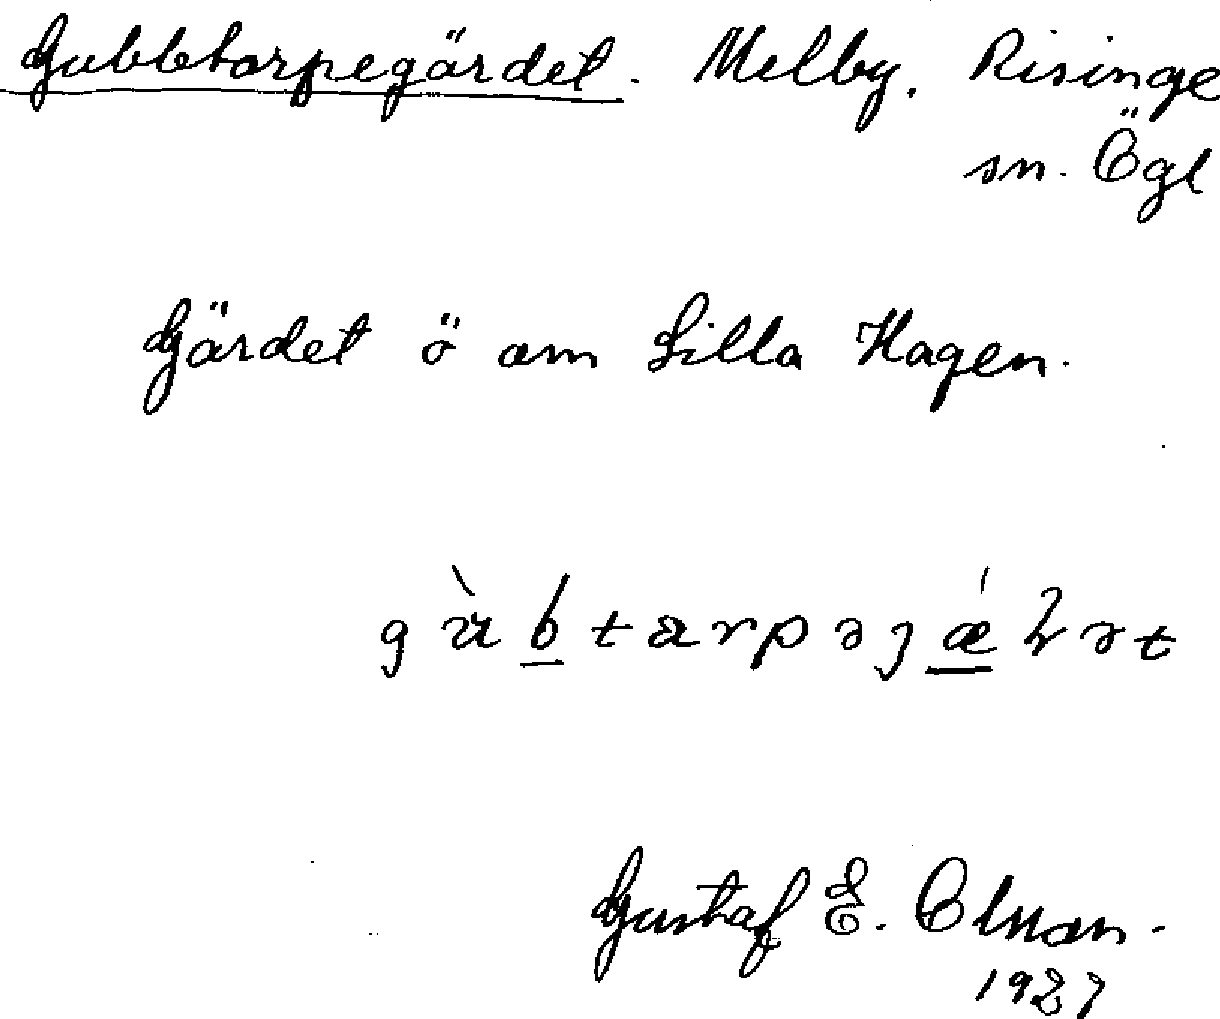 Gubbtorpegärdet. Melby. Risinge
sn. Ögl
Gärdet ö om Lilla Hagen.
Gustaf E. Olsson.
1927